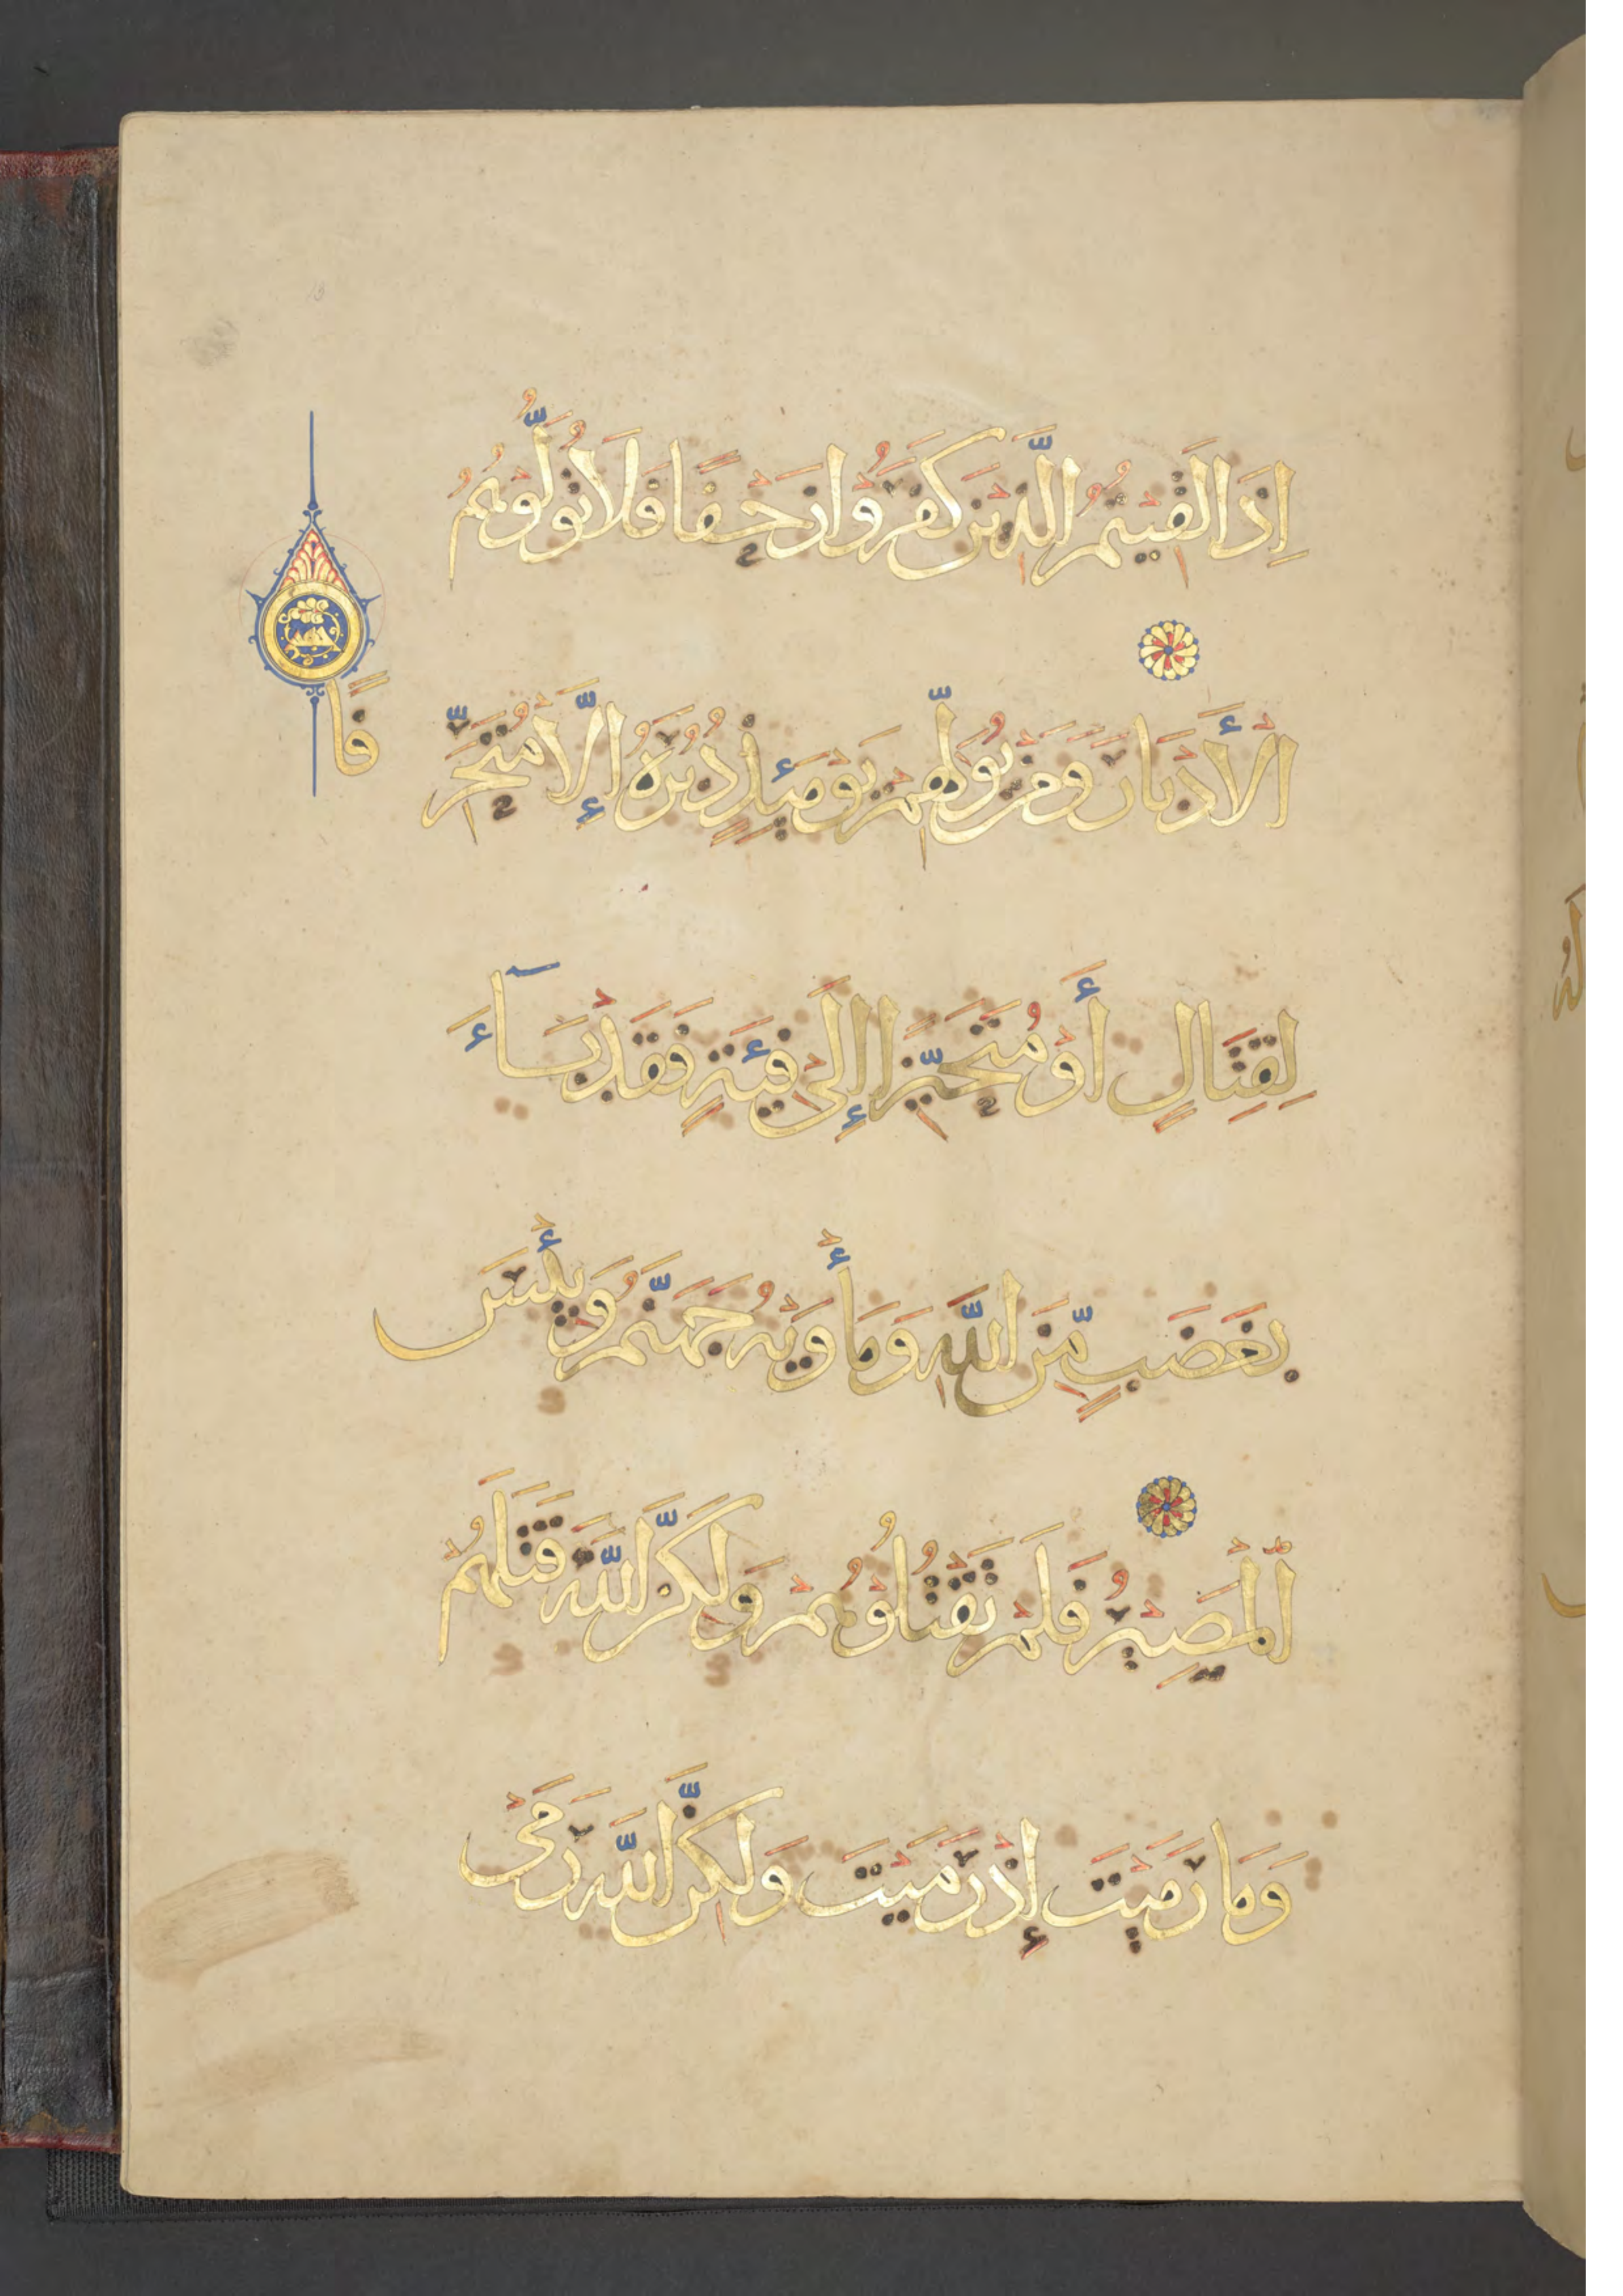 إِذَا لَقِيتُمُ الَّذِينَ كَفَرُوا زَحْفًا فَلَا تُوَلُّوهُمُ
الْأَدْبَارَ وَمَن يُوَلِّهِمْ يَوْمَئِذٍ دُبُرَهُ إِلَّا مُتَحَرِّ
فًا
لِقِتَالٍ أَوْ مُتَحَيِّزًا إِلَىٰ فِئَةٍ فَقَدْ بَآءَ
بِغَضَبٍ مِّنَ اللَّهِ وَمَأْوَيٰهُ جَهَنَّمُ وَبِئْسَ
الْمَصِيرُ فَلَمْ تَقْتُلُوهُمْ وَلَٰكِنَّ اللَّهَ قَتَلَهُمْ
وَمَا رَمَيْتَ إِذْ رَمَيْتَ وَلَٰكِنَّ اللَّهَ رَمَىٰ